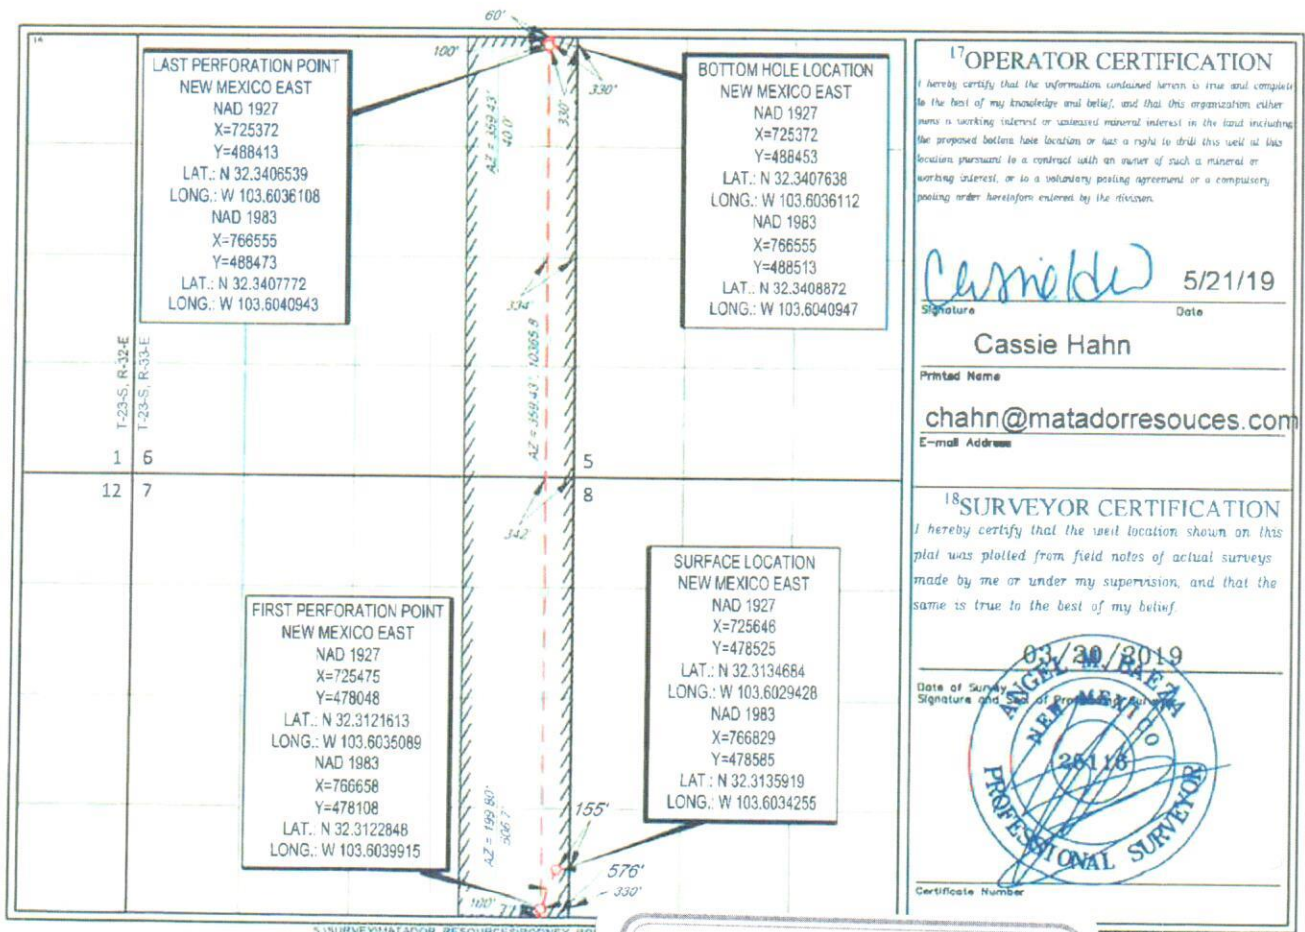 60'
16
100'
LAST PERFORATION POINT
NEW MEXICO EAST
NAD 1927
X=725372
Y=488413
LAT.: N 32.3406539
LONG.: W 103.6036108
NAD 1983
X=766555
Y=488473
LAT.: N 32.3407772
LONG.: W 103.6040943
AZ = 359.43°
40.0'
330'
330'
BOTTOM HOLE LOCATION
NEW MEXICO EAST
NAD 1927
X=725372
Y=488453
LAT.: N 32.3407638
LONG.: W 103.6036112
NAD 1983
X=766555
Y=488513
LAT.: N 32.3408872
LONG.: W 103.6040947
334'
AZ = 359.43° 10365.8
T-23-S, R-32-E
T-23-S, R-33-E
1 6
5
12 7
8
342'
FIRST PERFORATION POINT
NEW MEXICO EAST
NAD 1927
X=725475
Y=478048
LAT.: N 32.3121613
LONG.: W 103.6035089
NAD 1983
X=766658
Y=478108
LAT.: N 32.3122848
LONG.: W 103.6039915
SURFACE LOCATION
NEW MEXICO EAST
NAD 1927
X=725646
Y=478525
LAT.: N 32.3134684
LONG.: W 103.6029428
NAD 1983
X=766829
Y=478585
LAT.: N 32.3135919
LONG.: W 103.6034255
AZ = 199.80°
506.7'
155'
576'
330'
100'
S:\SURVEY\MATADOR_RESOURCES\RODNEY
17OPERATOR CERTIFICATION
I hereby certify that the information contained herein is true and complete
to the best of my knowledge and belief, and that this organization either
owns a working interest or unleased mineral interest in the land including
the proposed bottom hole location or has a right to drill this well at this
location pursuant to a contract with an owner of such a mineral or
working interest, or to a voluntary pooling agreement or a compulsory
pooling order heretofore entered by the division.
5/21/19
Signature Date
Cassie Hahn
Printed Name
chahn@matadorresouces.com
E-mail Address
18SURVEYOR CERTIFICATION
I hereby certify that the well location shown on this
plat was plotted from field notes of actual surveys
made by me or under my supervision, and that the
same is true to the best of my belief.
03/20/2019
Date of Survey
Signature and Seal of Professional Surveyor
ANGEL M. BAEZA
NEW MEXICO
25116
PROFESSIONAL SURVEYOR
Certificate Number